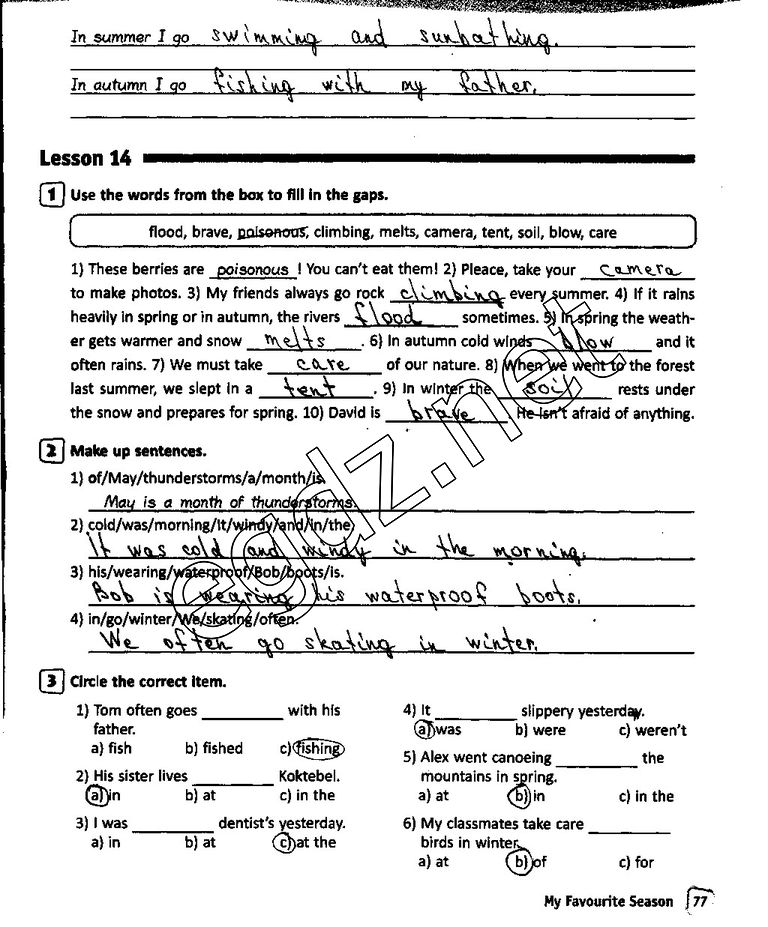 In summer I go swimming and sunbathing.
In autumn I go fishing with my father.
Lesson 14
1 Use the words from the box to fill in the gaps.
flood, brave, poisonous, climbing, melts, camera, tent, soil, blow, care
1) These berries are poisonous! You can't eat them! 2) Pleace, take your camera
to make photos. 3) My friends always go rock climbing every summer. 4) If it rains
heavily in spring or in autumn, the rivers flood sometimes. 5) In spring the weath-
er gets warmer and snow melts. 6) In autumn cold winds blow and it
often rains. 7) We must take care of our nature. 8) When we went to the forest
last summer, we slept in a tent. 9) In winter the soil rests under
the snow and prepares for spring. 10) David is brave. He isn't afraid of anything.
2 Make up sentences.
1) of/May/thunderstorms/a/month/is.
May is a month of thunderstorms.
2) cold/was/morning/It/windy/and/in/the.
It was cold and windy in the morning.
3) his/wearing/waterproof/Bob/boots/is.
Bob is wearing his waterproof boots.
4) in/go/winter/We/skating/often.
We often go skating in winter.
3 Circle the correct item.
1) Tom often goes ________ with his
father.
a) fish b) fished c) fishing
2) His sister lives ________ Koktebel.
a) in b) at c) in the
3) I was ________ dentist's yesterday.
a) in b) at c) at the
4) It ________ slippery yesterday.
a) was b) were c) weren't
5) Alex went canoeing ________ the
mountains in spring.
a) at b) in c) in the
6) My classmates take care ________
birds in winter.
a) at b) of c) for
My Favourite Season 77
egdz.net